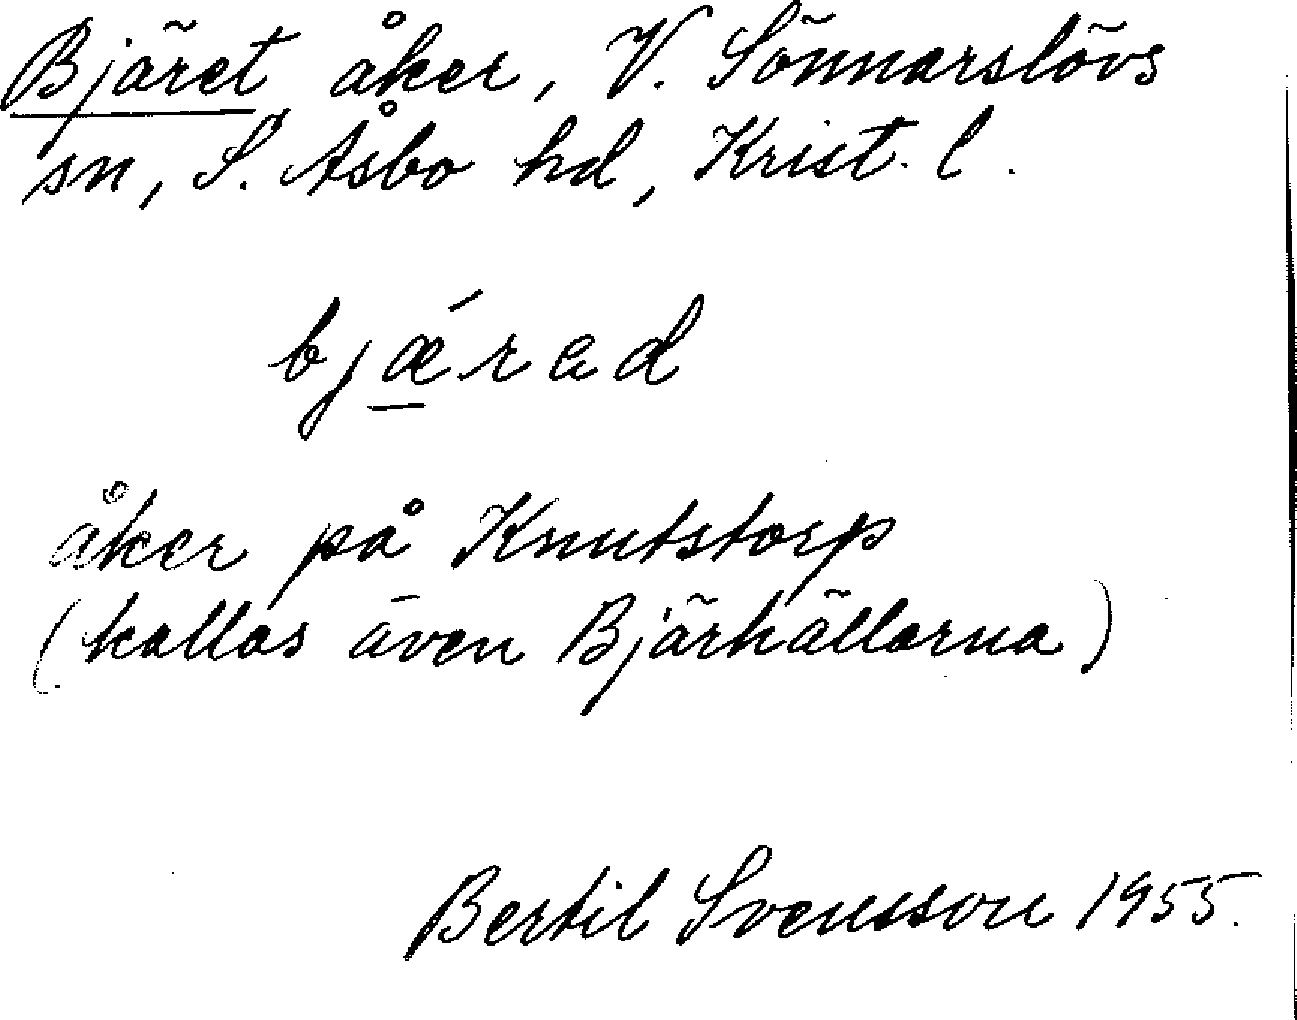 Bjäret åker, V. Sönnarslövs
sn, S. Åsbo hd, Krist. l.
bjǽrad
åker på Knutstorp
(kallas även Bjärhällarna)
Bertil Svensson 1955.